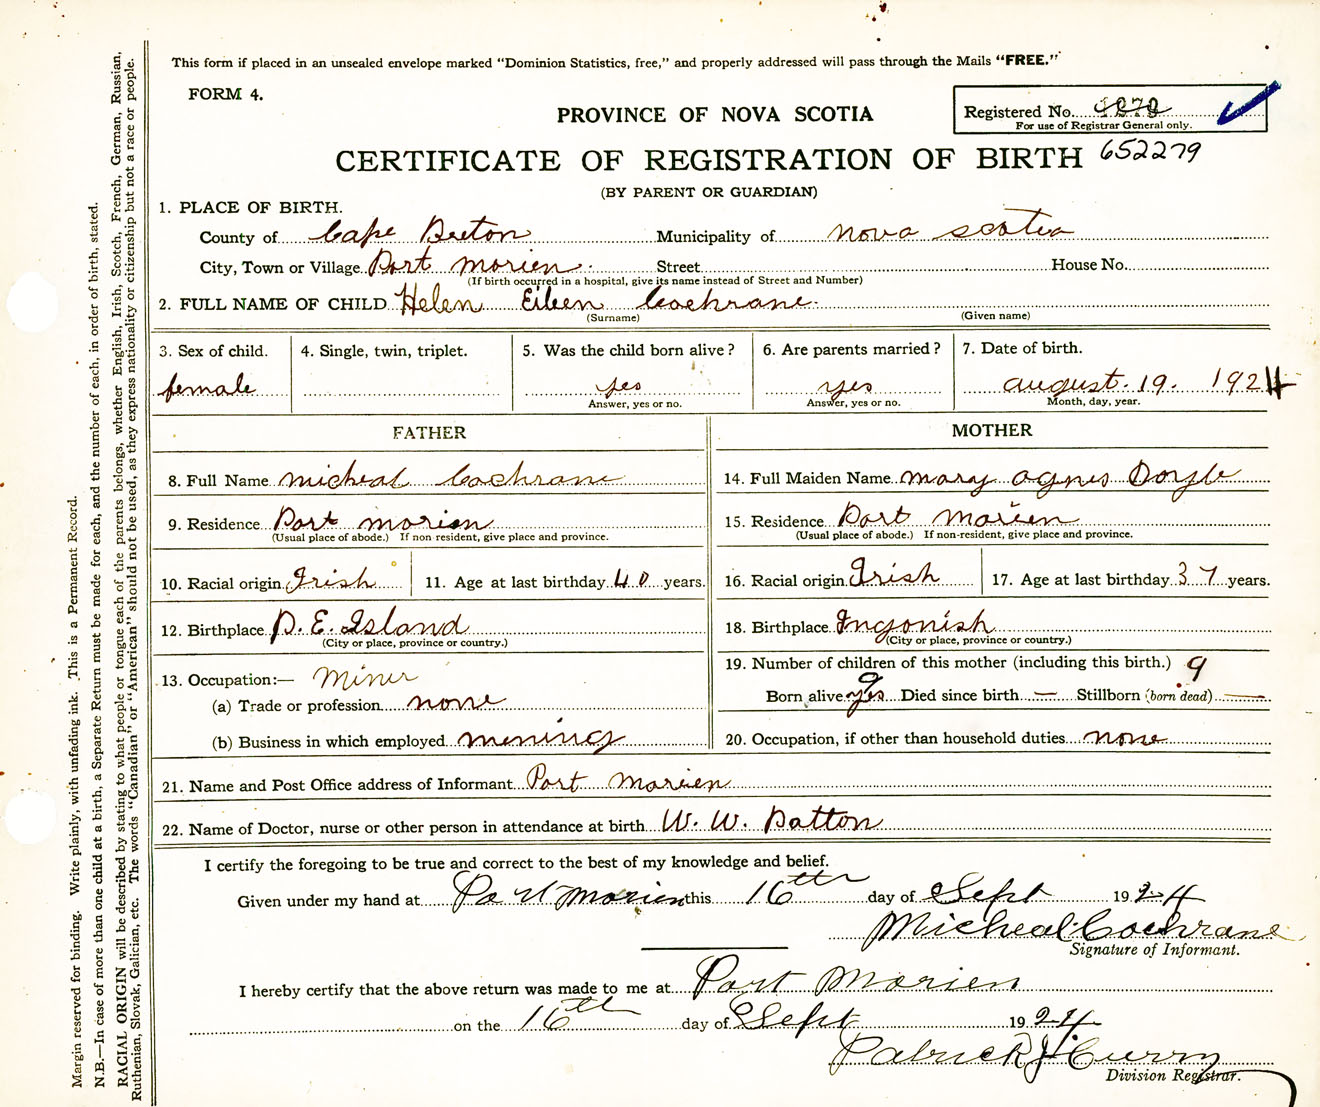 This form if placed in an unsealed envelope marked "Dominion Statistics, free," and properly addressed will pass through the Mails "FREE."
FORM 4.
PROVINCE OF NOVA SCOTIA
Registered No.
For use of Registrar General only.
CERTIFICATE OF REGISTRATION OF BIRTH 652279
(BY PARENT OR GUARDIAN)
1. PLACE OF BIRTH.
County of Cape Breton Municipality of Nova Scotia
City, Town or Village Port Morien Street House No.
(If birth occurred in a hospital, give its name instead of Street and Number)
2. FULL NAME OF CHILD Helen Eileen Cochrane
(Surname) (Given name)
3. Sex of child. 4. Single, twin, triplet. 5. Was the child born alive? 6. Are parents married? 7. Date of birth.
female yes yes august. 19. 1924
Answer, yes or no. Answer, yes or no. Month, day, year.
FATHER
8. Full Name Micheal Cochrane
9. Residence Port Morien
(Usual place of abode.) If non-resident, give place and province.
10. Racial origin Irish 11. Age at last birthday 40 years.
12. Birthplace P. E. Island
(City or place, province or country.)
13. Occupation:— Miner
(a) Trade or profession none
(b) Business in which employed mening
MOTHER
14. Full Maiden Name Mary Agnes Doyle
15. Residence Port Morien
(Usual place of abode.) If non-resident, give place and province.
16. Racial origin Irish 17. Age at last birthday 37 years.
18. Birthplace Ingonish
(City or place, province or country.)
19. Number of children of this mother (including this birth.) 9
Born alive yes 9 Died since birth — Stillborn (born dead) —
20. Occupation, if other than household duties none
21. Name and Post Office address of Informant Port Morien
22. Name of Doctor, nurse or other person in attendance at birth W. W. Patton
I certify the foregoing to be true and correct to the best of my knowledge and belief.
Given under my hand at Port Morien this 16th day of Sept 1924
Micheal Cochrane
Signature of Informant.
I hereby certify that the above return was made to me at Port Morien
on the 16th day of Sept 1924
Patrick J. Curry
Division Registrar.
Margin reserved for binding. Write plainly, with unfading ink. This is a Permanent Record.
N.B.—In case of more than one child at a birth, a Separate Return must be made for each, and the number of each, in order of birth, stated.
RACIAL ORIGIN will be described by stating to what people or tongue each of the parents belongs, whether English, Irish, Scotch, French, German, Russian,
Ruthenian, Slovak, Galician, etc. The words "Canadian" or "American" should not be used, as they express nationality or citizenship but not a race or people.